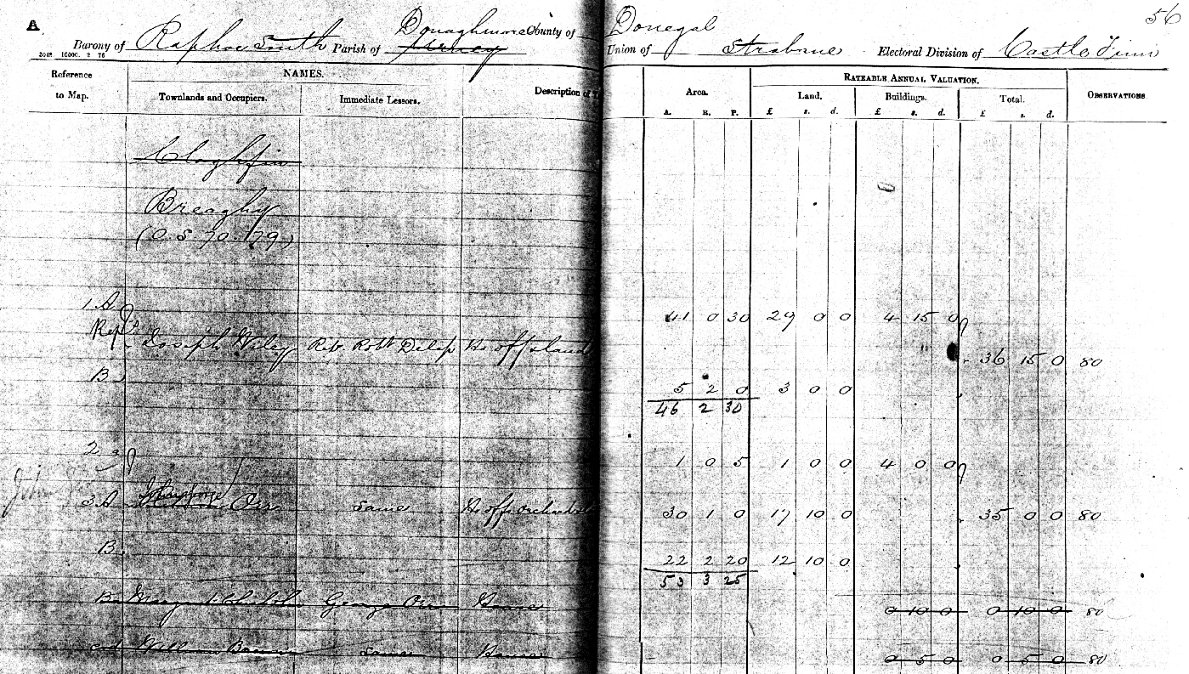 A
56
Barony of Raphoe South Parish of Donaghmore County of Donegal Union of Strabane Electoral Division of Castle Finn
Reference to Map.
NAMES.
Townlands and Occupiers.
Immediate Lessors.
Description of T
Area.
A. R. P.
RATEABLE ANNUAL VALUATION.
Land.
£ s. d.
Buildings.
£ s. d.
Total.
£ s. d.
OBSERVATIONS
Cloghfin
Breaghy
(O.S. 70. 79)
1 A 41 0 30 29 0 0 4 15 0
Joseph Wiley Rev. Robt Delap Ho off & land 36 15 0 80
B 5 2 0 3 0 0
46 2 30
2 a 1 0 5 1 0 0 4 0 0
John
3 A Orr Same Ho off orchard 30 1 0 17 10 0 35 0 0 80
B 22 2 20 12 10 0
53 3 25
Margaret George Orr House 0 10 0 0 10 0 80
William Same House 0 5 0 0 5 0 80